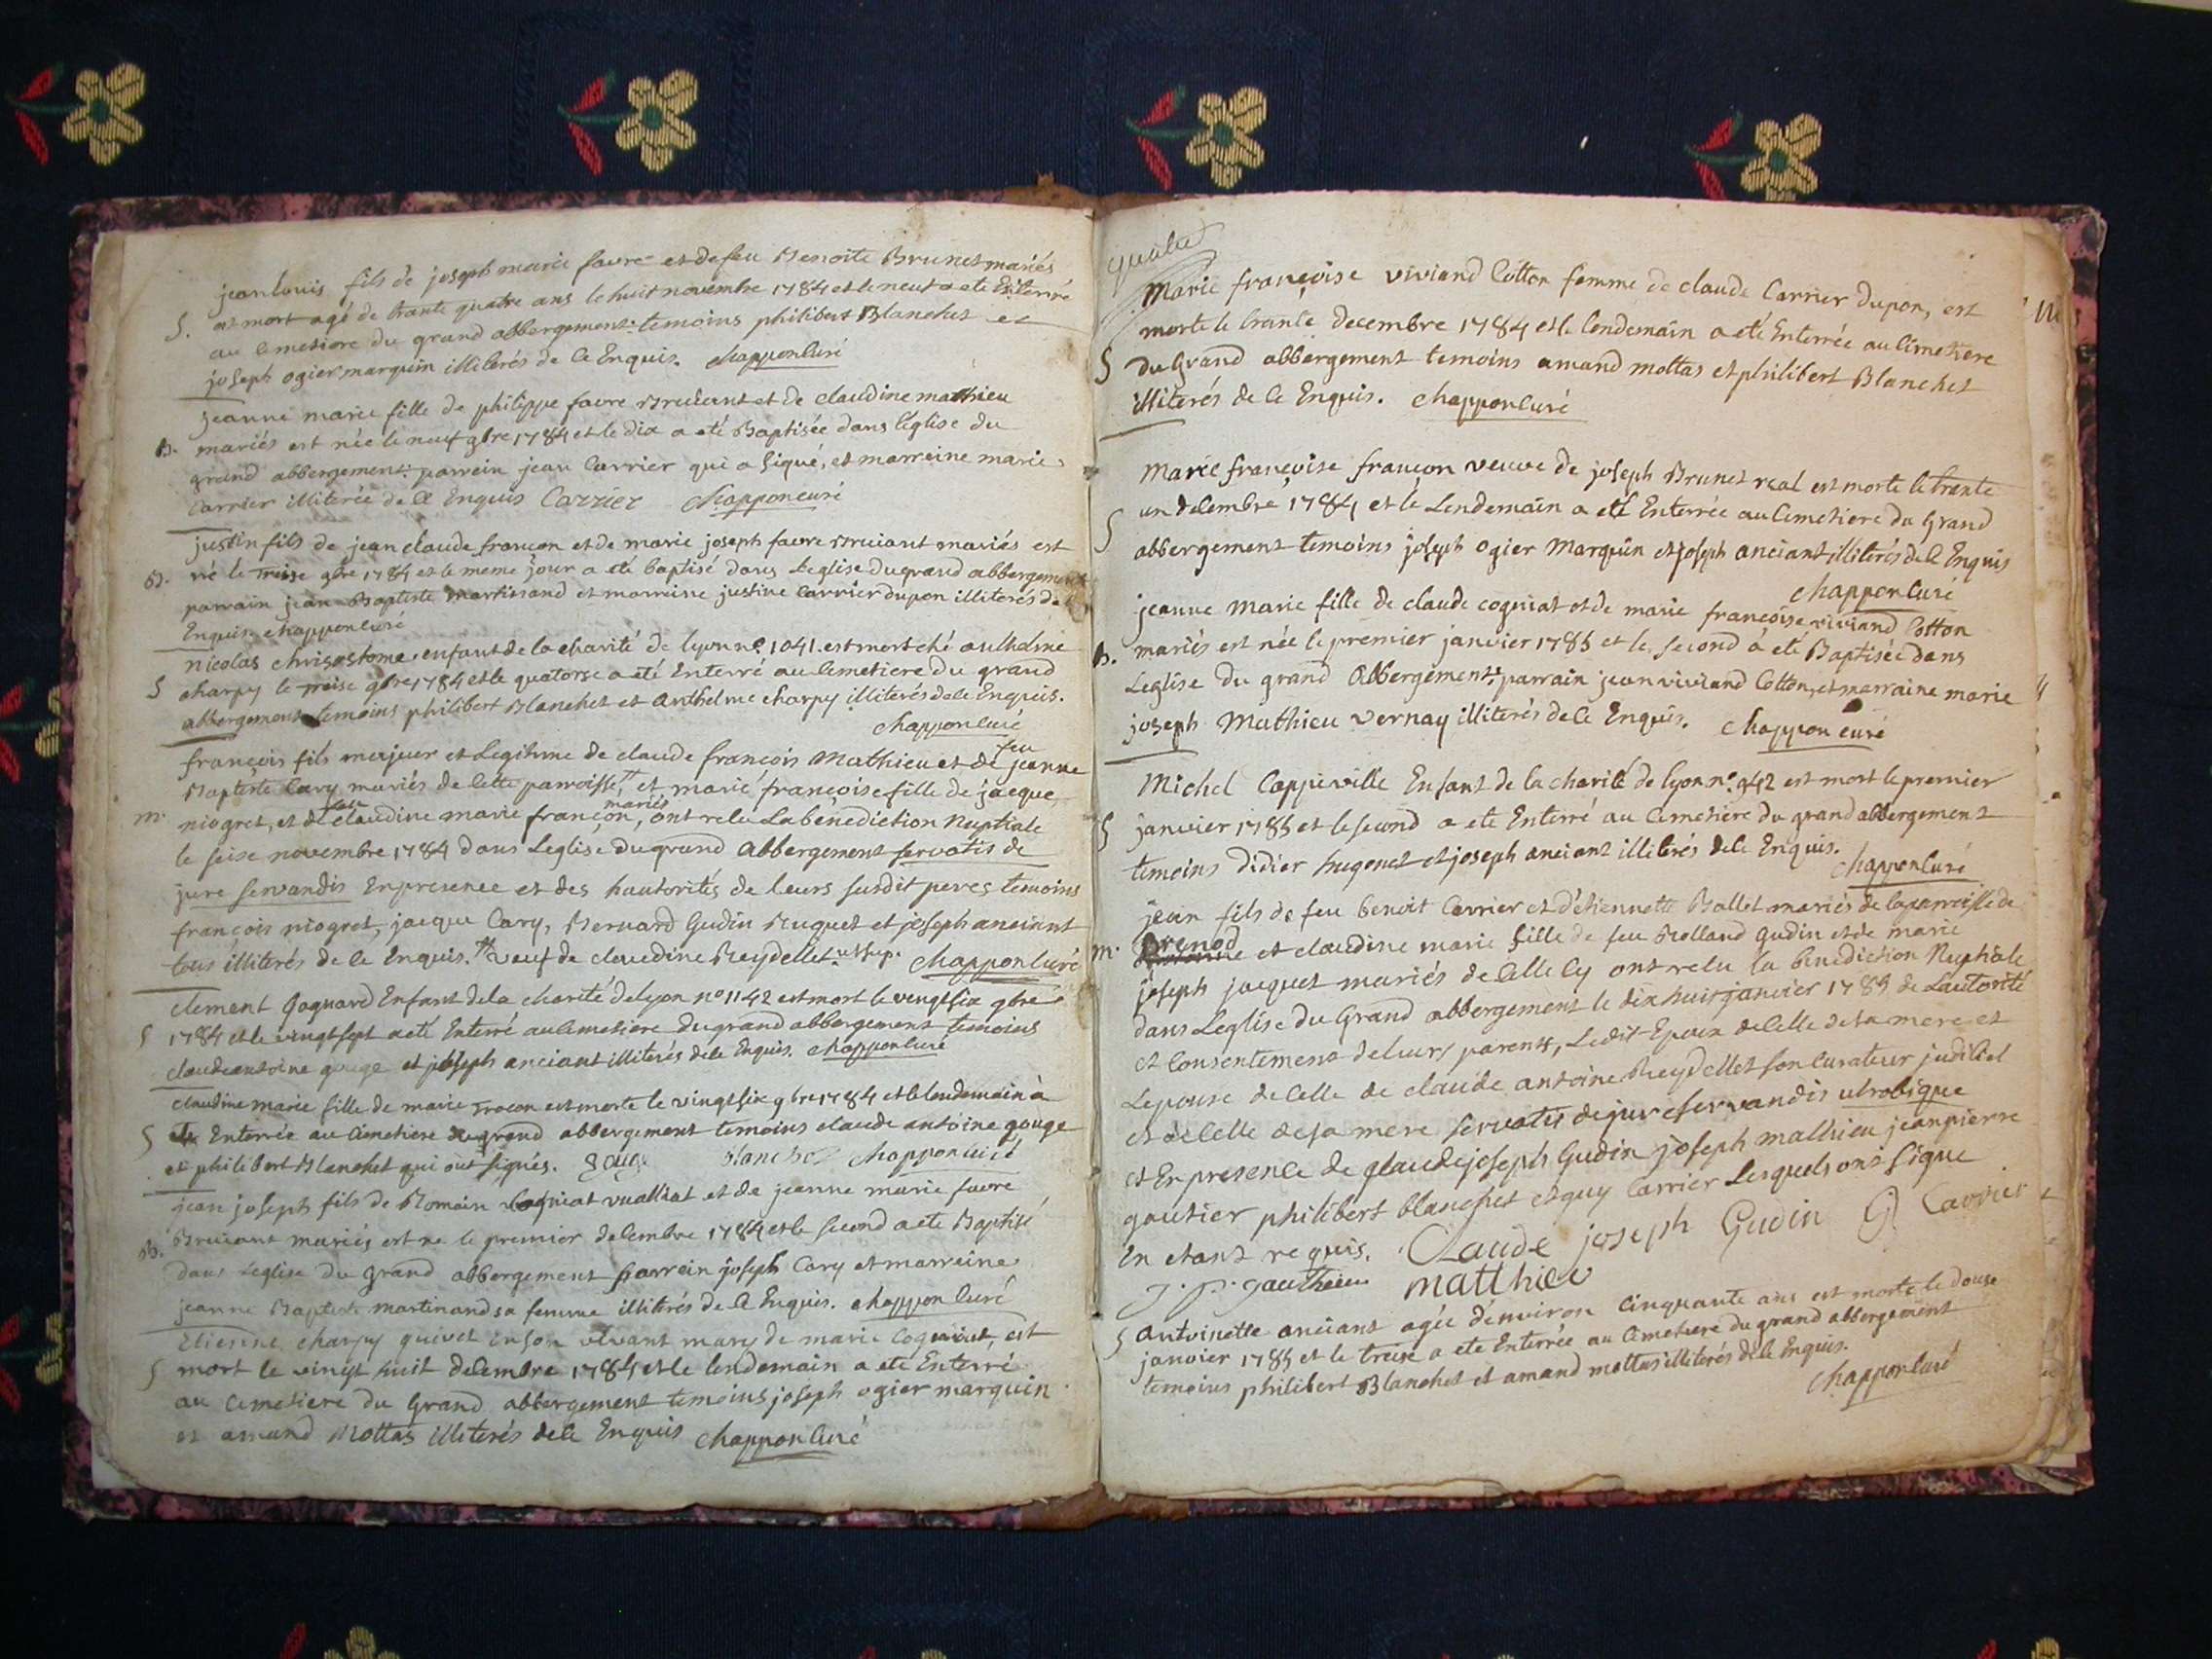 jean louis fils de joseph marie favre et de feu Benoite Brunet mariés
S. est mort agé de trante quatre ans le huit novembre 1784 et le neuf a eté Enterré
au cimetiere du grand abbergement. temoins philibert Blanchet et
joseph ogier marquin illiterés de ce Enquis. chappon curé
jeanne marie fille de philippe favre Bruciant et de claudine mathieu
B. mariés est née le neuf 9bre 1784 et le dix a eté Baptisée dans l'église du
grand abbergement. parrein jean Carrier qui a signé, et marreine marie
Carrier illiterée de ce Enquis Carrier chappon curé
justin fils de jean claude françon et de marie joseph favre Bruciant mariés est
B. né le treise 9bre 1784 et le meme jour a eté baptisé dans Leglise du grand abbergement
parrain jean Baptiste martinand et marreine justine Carrier dupon illiterés de ce
Enquis. chappon curé
nicolas chrisostome enfant de la charité de lyon n° 1041. est mort ché anthelme
S charpy le treise 9bre 1784 et le quatorse a eté Enterré au Cemetiere du grand
abbergement temoins philibert Blanchet et Anthelme charpy illiterés de ce Enquis.
chappon curé
françois fils majeur et Legitime de claude françois Mathieu et de feu jeanne
Baptiste Cary mariés de Cette parroisse, # et marie françoise fille de jacque
m. niogret, et de feu claudine marie françon, mariés ont relu La benediction Nuptiale
le seise novembre 1784 dans Leglise du grand Abbergement servatis de
jure servandis En presence et des hautorités de leurs susdit peres temoins
françois niogret, jacque Cary, Bernard Gudin Huguet et joseph anciant
tous illiterés de ce Enquis. # veuf de claudine Reydellet. ut sup. chappon curé
clement Goguard Enfant de la charité de lyon n° 1142 est mort le vengt six 9bre
S 1784 et le vingt sept a eté Enterré au Cemetiere du grand abbergement temoins
claude antoine gouge et joseph anciant illiterés de ce Enquis. chappon curé
claudine marie fille de marie Trocon est morte le vingt six 9bre 1784 et le lendemain a
S eté Enterrée au Cimetiere du grand abbergement temoins claude antoine gouge
et philibert Blanchet qui ont signés. gouge blanchet chappon curé
jean joseph fils de Romain Cogniat vualliat et de jeanne marie favre
B. Bruciant mariés est né le premier decembre 1784 et le second a eté Baptisé
dans Leglise du grand abbergement parrein joseph Cary et marreine
jeanne Baptiste martinand sa femme illiterés de ce Enquis. chappon curé
Etienne charpy quivet En son vivant mary de marie Cogniat, est
S mort le vingt huit decembre 1784 et le lendemain a eté Enterré
au Cimetiere du Grand abbergement temoins joseph ogier marquin
et amand Mottas illiterés de ce Enquis chappon curé
Marie françoise viviand Cotton femme de claude Carrier dupon, est
morte le trante decembre 1784 et le lendemain a eté Enterrée au Cimetiere
S du Grand abbergement temoins amand mottas et philibert Blanchet
illiterés de ce Enquis. chappon curé
Marie françoise françon veuve de joseph Brunet real est morte le trante
un decembre 1784 et le Lendemain a eté Enterrée au Cemetiere du Grand
S abbergement temoins joseph ogier Marquin et joseph anciant illiterés de ce Enquis
chappon curé
jeanne Marie fille de claude cogniat et de marie françoise viviand Cotton
B. mariés est née le premier janvier 1785 et le second a eté Baptisée dans
Leglise du grand Abbergement; parrain jean viviand Cotton, et marraine marie
joseph Mathieu vernay illiterés de ce Enquis. chappon curé
Michel Cappeville Enfant de la charité de lyon n°. 942 est mort le premier
S janvier 1785 et le second a eté Enterré au Cemetiere du grand abbergement
temoins didier hugonet et joseph anciant illiterés de ce Enquis.
chappon curé
jean fils de feu benoit Carrier et d'étiennette Ballet mariés de la parroisse de
m. Brenod et claudine marie fille de feu Rolland Gudin et de marie
joseph jacquet mariés de Celle Cy ont relu la benediction Nuptiale
dans Leglise du Grand abbergement le dix huit janvier 1785 de Lautorité
et Consentement de leurs parents, Ledit Epoux de Celle de sa mere et
Lepouse de Celle de claude antoine Reydellet son curateur judiciel
et de Celle de sa mere servatis de jure servandis utrobique
et En presence de glaude joseph Gudin joseph mathieu jean pierre
gautier philibert blanchet et guy Carrier Lesquels ont signe
En etant requis. Claude joseph Gudin G Carrier
j. p. gauthier matthieu
S antoinette anciant agée d'environ Cinquante ans est morte le douse
janvier 1785 et le treise a eté Enterrée au Cimetiere du grand abbergement
temoins philibert Blanchet et amand mottas illiterés de ce Enquis.
chappon curé